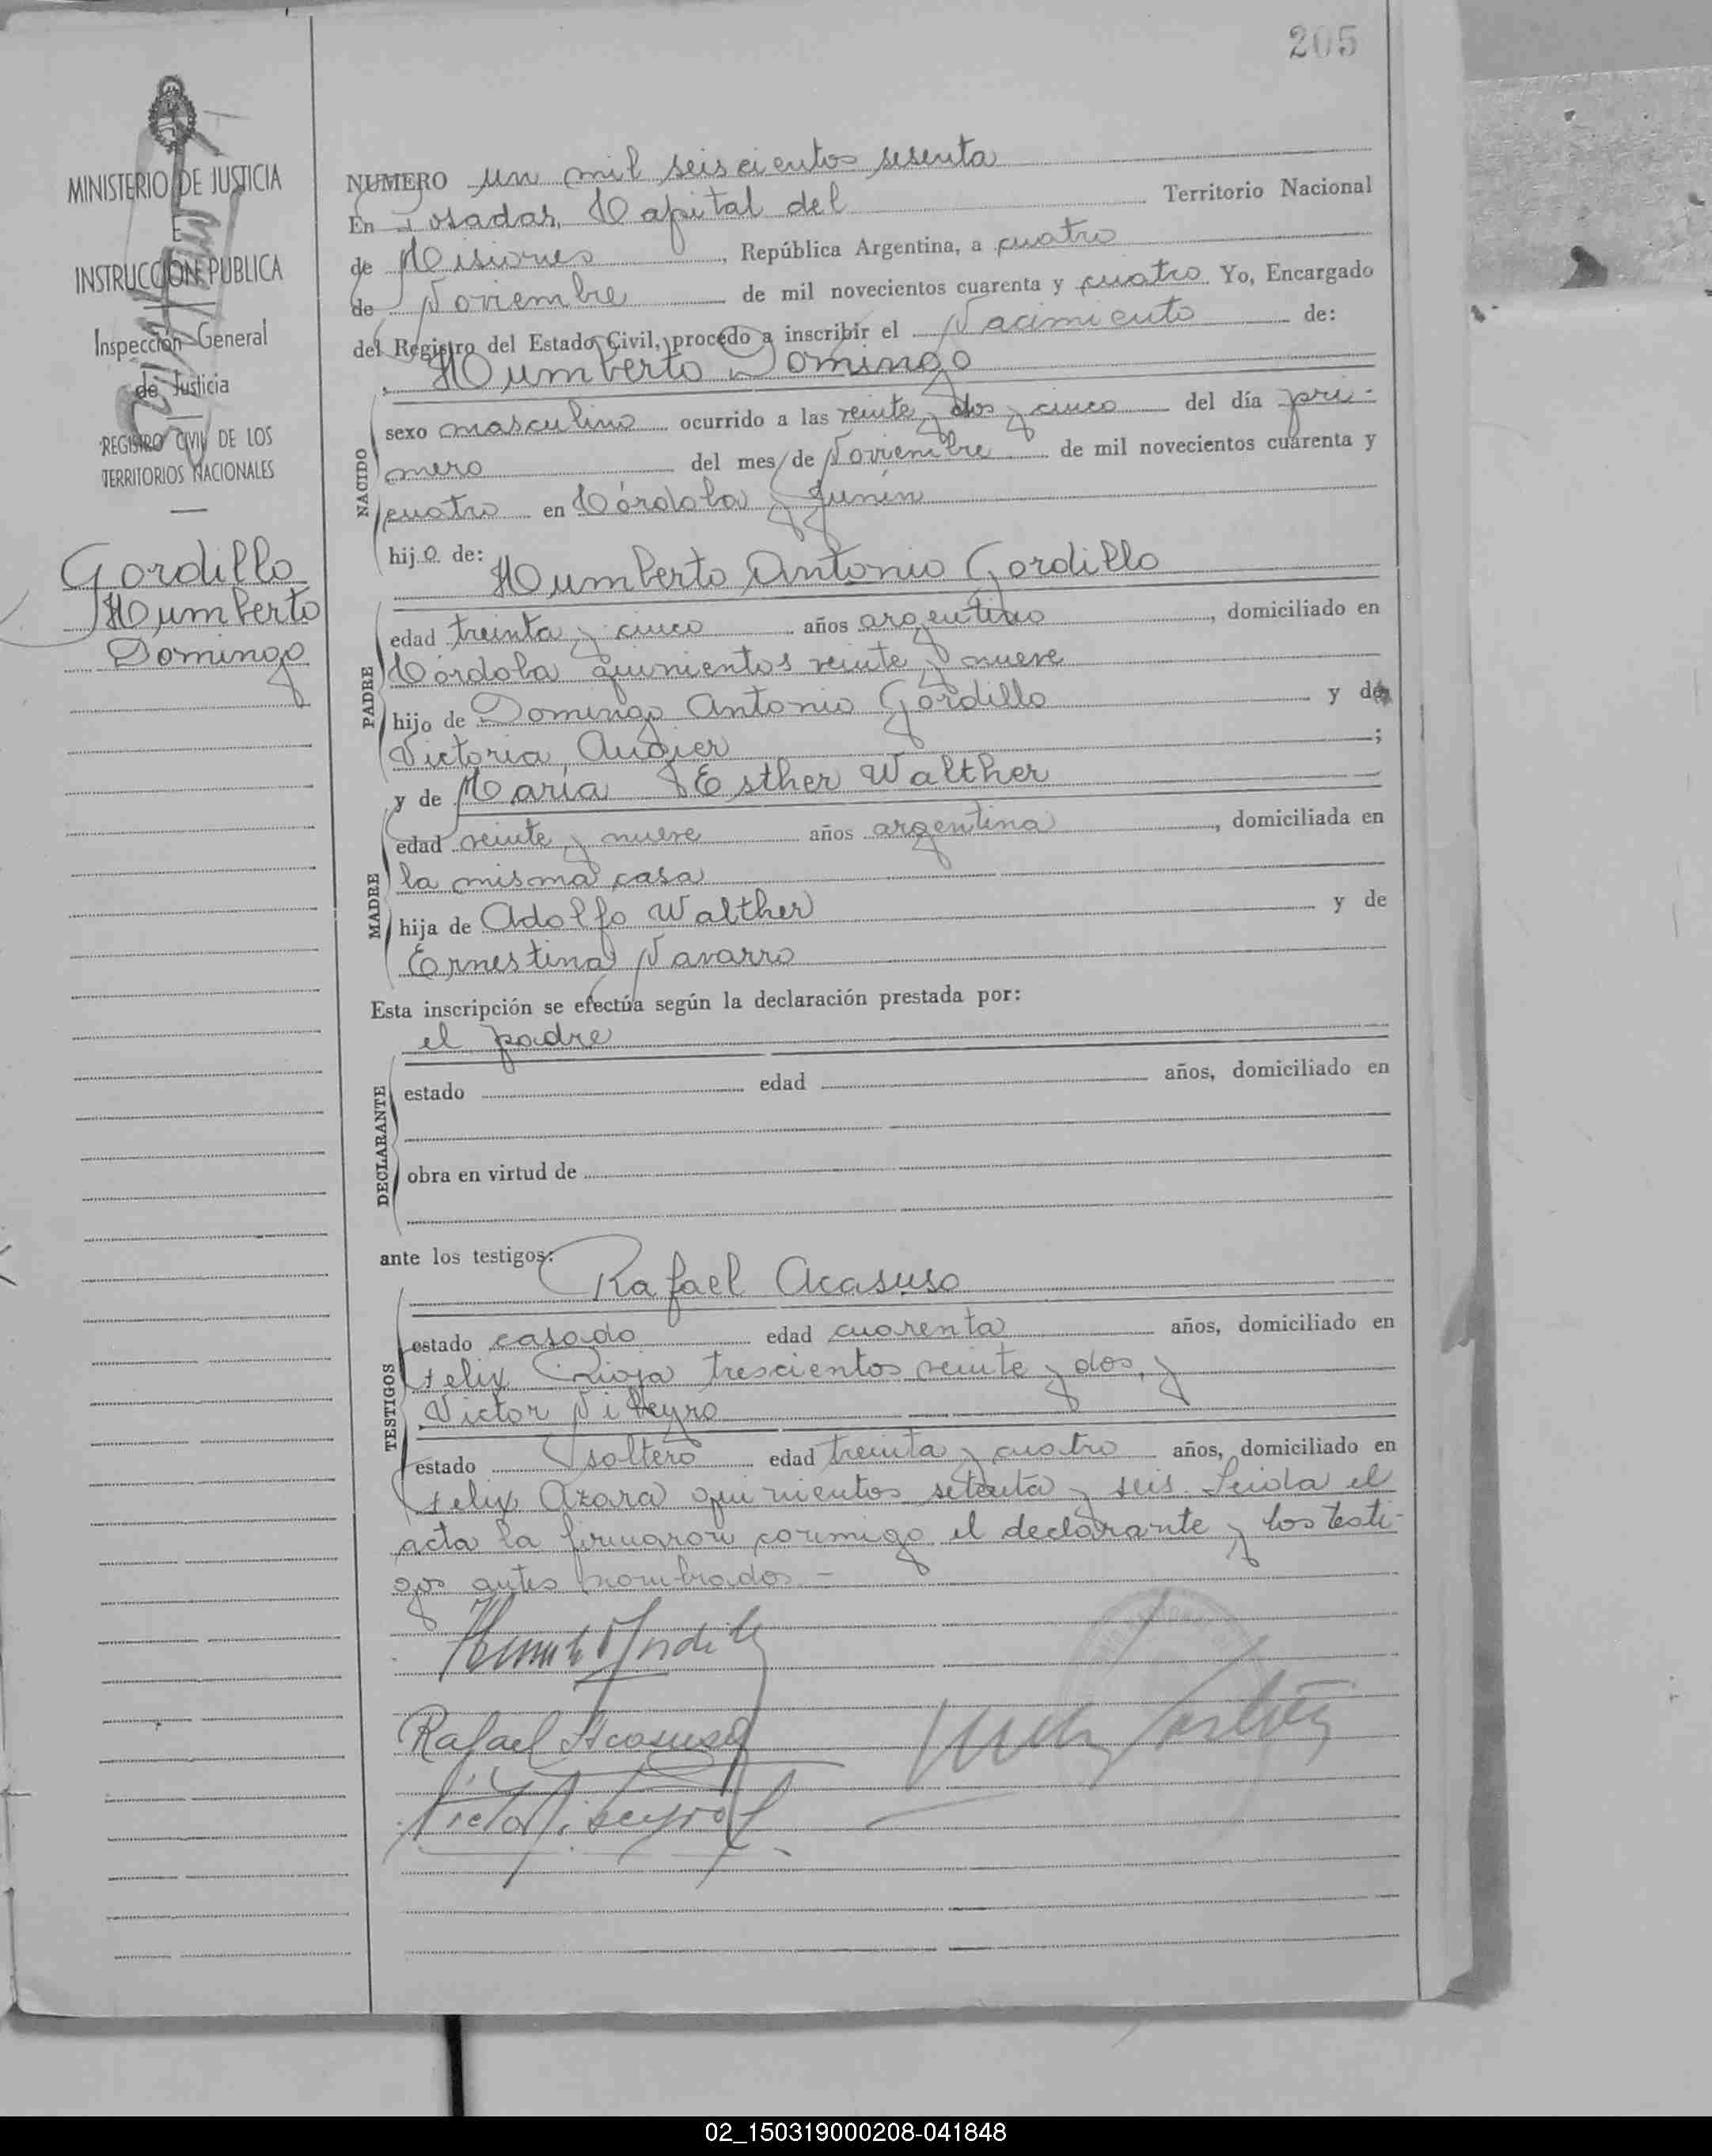 205
MINISTERIO DE JUSTICIA
E
INSTRUCCION PUBLICA
Inspección General
de Justicia
REGISTRO CIVIL DE LOS
TERRITORIOS NACIONALES
Gordillo
Humberto
Domingo
NUMERO un mil seiscientos sesenta
En Posadas, Capital del Territorio Nacional
de Misiones, República Argentina, a cuatro
de Noviembre de mil novecientos cuarenta y cuatro Yo, Encargado
del Registro del Estado Civil, procedo a inscribir el Nacimiento de:
Humberto Domingo
NACIDO
sexo masculino ocurrido a las veinte y dos y cinco del día pri-
mero del mes de Noviembre de mil novecientos cuarenta y
cuatro en Córdoba y Junín
hijo de:
Humberto Antonio Gordillo
PADRE
edad treinta y cinco años argentino, domiciliado en
Córdoba quinientos veinte y nueve
hijo de Domingo Antonio Gordillo y de
Victoria Augier ;
y de María Esther Walther
MADRE
edad veinte y nueve años argentina, domiciliada en
la misma casa
hija de Adolfo Walther y de
Ernestina Navarro
Esta inscripción se efectúa según la declaración prestada por:
el padre
DECLARANTE
estado edad años, domiciliado en
obra en virtud de
ante los testigos:
Rafael Acasuso
TESTIGOS
estado casado edad cuarenta años, domiciliado en
Rioja trescientos veinte y dos, y
Victor Niveyro
estado soltero edad treinta y cuatro años, domiciliado en
Felix Azara quinientos setenta y seis. Leida el
acta la firmaron conmigo el declarante y los testi-
gos antes nombrados -
Rafael Acasuso
02_150319000208-041848